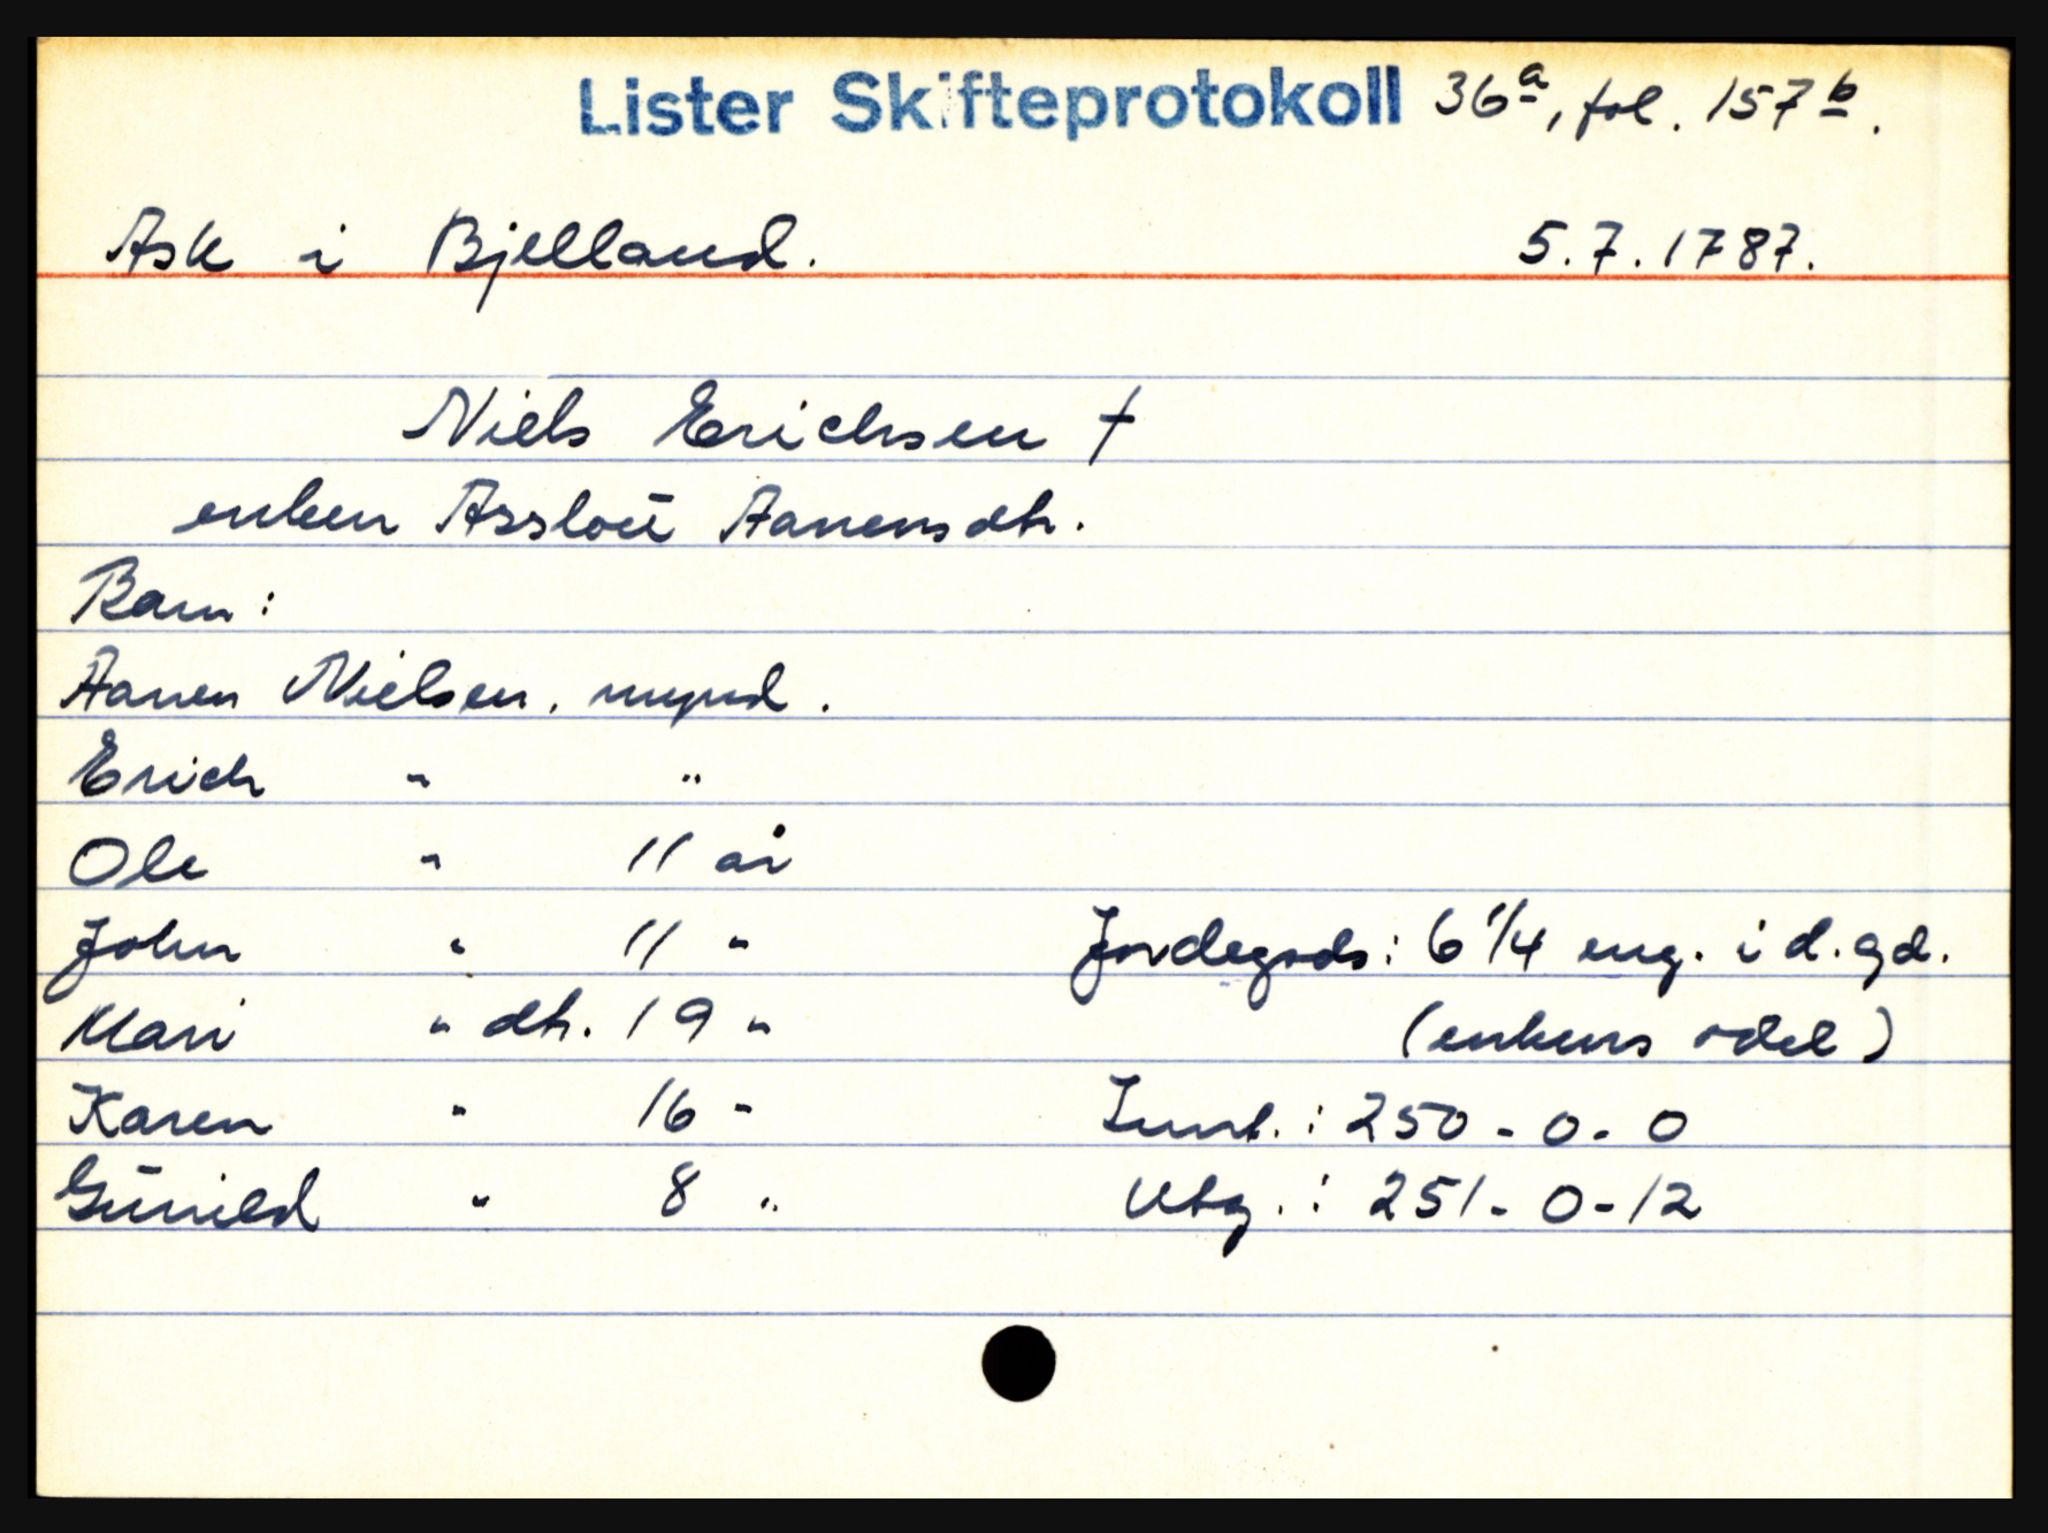 Lister Skifteprotokoll 36a, fol. 157b.
Ask i Bjelland. 5.7.1787.
Niels Erichsen †
enken Assloŭ Aanensdtr.
Barn:
Aanen Nielsen, mynd.
Erich " "
Ole " 11 år
John " 11 " Jordegods: 6 1/4 eng. i d. gd.
Mari " dtr. 19 " (enkens odel)
Karen " 16 " Innt.: 250-0-0
Gŭnild " 8 " Utg.: 251-0-12